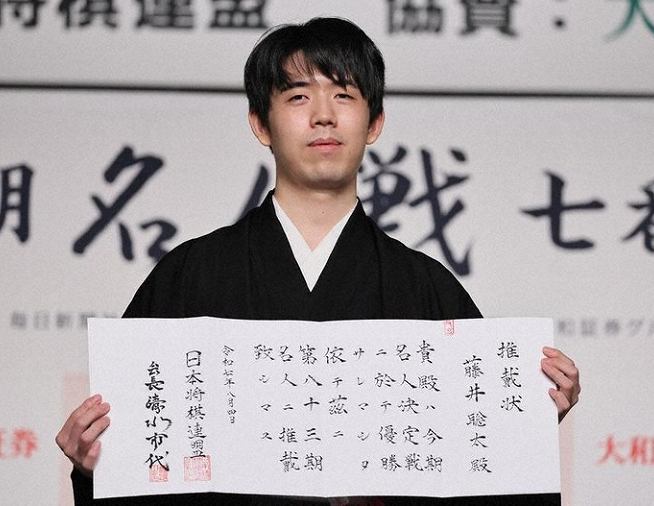 将棋連盟 協賛：大
期名人戦七番
毎日新聞
和証券グル
推戴状
藤井聡太殿
貴殿ハ今期
名人決定戦
ニ於テ優勝
サレマシタ
依テ茲ニ
第八十三期
名人ニ推戴
致シマス
令和七年八月四日
日本将棋連盟
会長清水市代
証券
大和